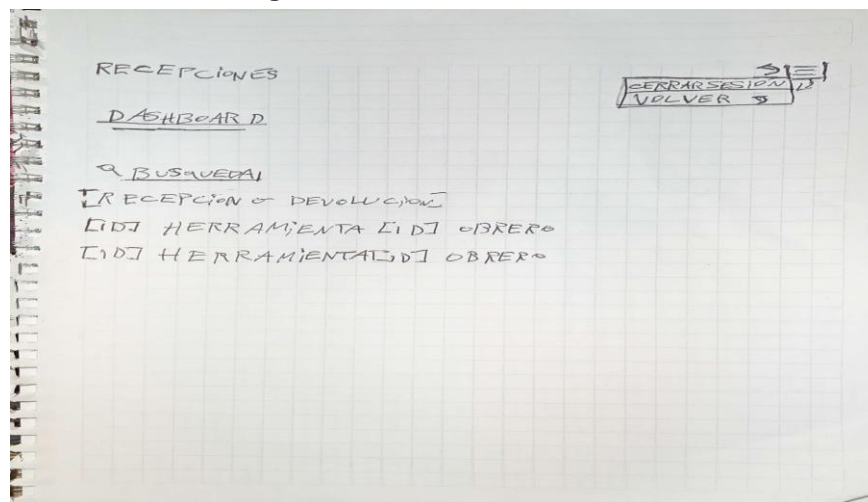 RECEPCIONES
CERRAR SESION
VOLVER
DASHBOARD
BUSQUEDA
[RECEPCION o DEVOLUCION]
[ID] HERRAMIENTA [ID] OBRERO
[ID] HERRAMIENTA [ID] OBRERO